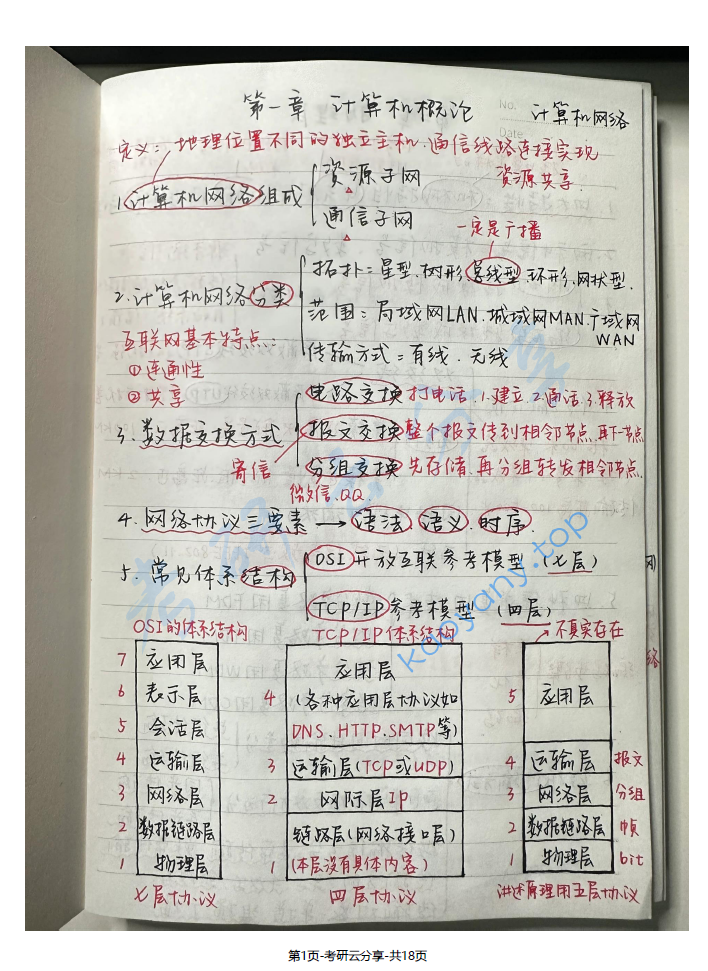 第一章 计算机概论
No.
计算机网络
Date
定义：地理位置不同的独立主机.通信线路连接实现
资源共享.
1.计算机网络组成
资源子网
通信子网
一定是广播
2.计算机网络分类
拓扑：星型.树形.总线型.环形.网状型.
范围：局域网LAN.城域网MAN.广域网
WAN
传输方式：有线.无线
互联网基本特点：
①连通性
②共享
3.数据交换方式
电路交换 打电话 1.建立.2.通话.3.释放
报文交换 整个报文传到相邻节点.再下一节点
寄信
分组交换 先存储.再分组转发相邻节点.
微信.QQ.
4.网络协议三要素→语法.语义.时序.
5.常见体系结构
OSI开放互联参考模型（七层）
TCP/IP参考模型（四层）
OSI的体系结构
7 应用层
6 表示层
5 会话层
4 运输层
3 网络层
2 数据链路层
1 物理层
七层协议
TCP/IP体系结构
4 应用层
(各种应用层协议如
DNS.HTTP.SMTP等)
3 运输层(TCP或UDP)
2 网际层IP
1 链路层(网络接口层)
(本层没有具体内容)
四层协议
不真实存在
5 应用层
4 运输层 报文
3 网络层 分组
2 数据链路层 帧
1 物理层 bit
讲述原理用五层协议
考研云分享
kaoyany.top
第1页-考研云分享-共18页